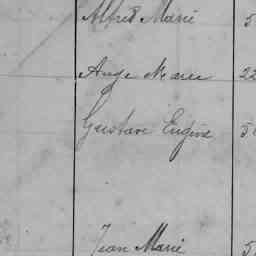 Alfred Marie 5
Ange Marie 22
Gustave Eugène 5
Jean Marie 5